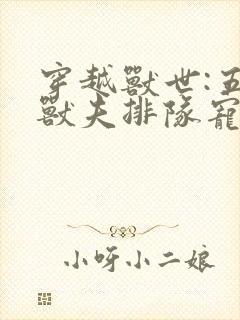 穿越獸世:五
獸夫排隊寵
小呀小二娘